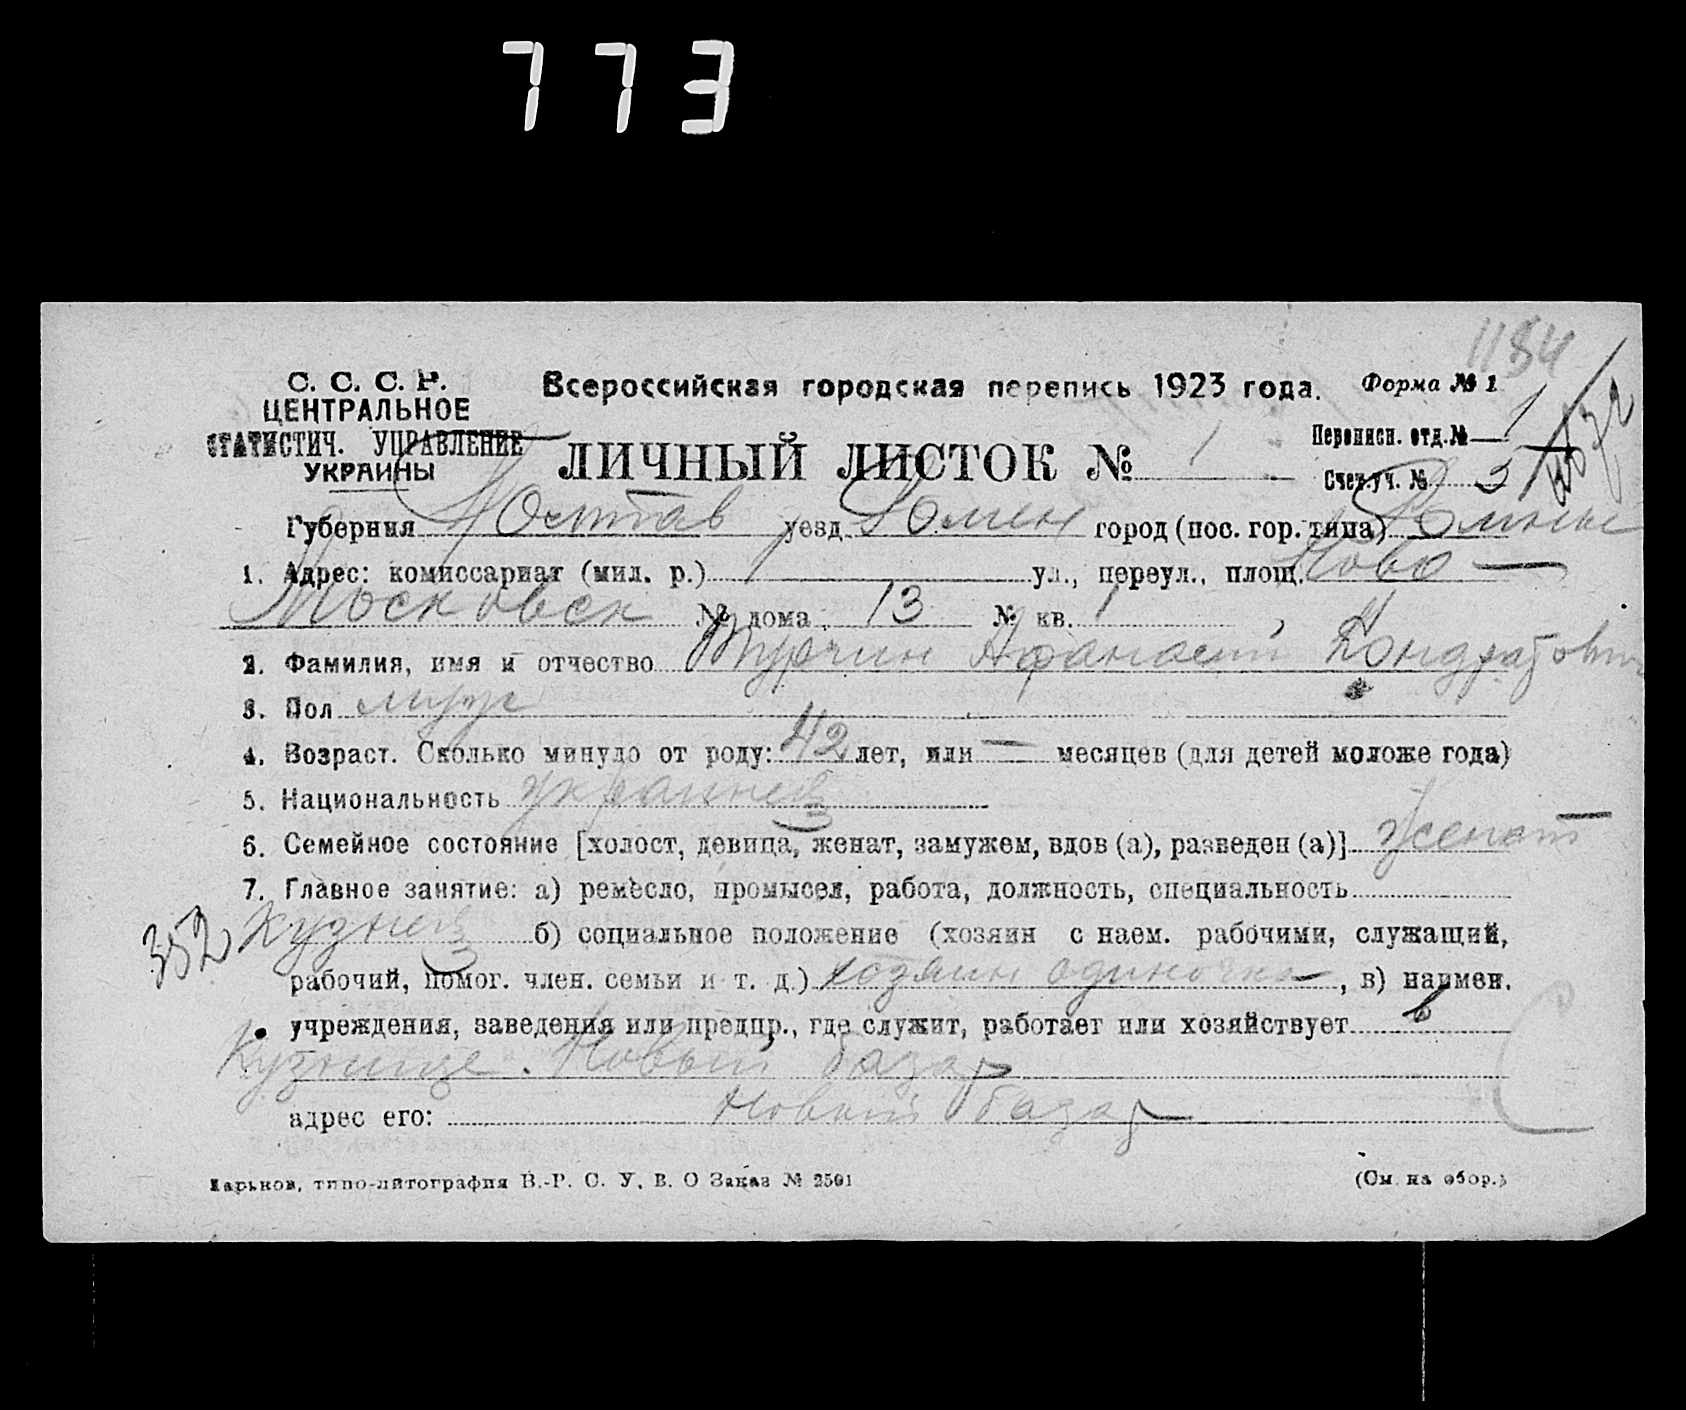 773
1184
С. С. С. Р.
ЦЕНТРАЛЬНОЕ
СТАТИСТИЧ. УПРАВЛЕНИЕ
УКРАИНЫ
Всероссийская городская перепись 1923 года. Форма № 1
ЛИЧНЫЙ ЛИСТОК № 1
Переписн. отд. № 1
Счетн. уч. № 3
Губерния Полтав уезд Ромен город (пос. гор. типа) Ромны
1. Адрес: комиссариат (мил. р.) ул., переул., площ. Ново —
Московск № дома 13 № кв. 1
2. Фамилия, имя и отчество Турчин Афанасий Кондратович
3. Пол муж
4. Возраст. Сколько минуло от роду: 42 лет, или — месяцев (для детей моложе года)
5. Национальность украинец
6. Семейное состояние [холост, девица, женат, замужем, вдов (а), разведен (а)] женат
7. Главное занятие: а) ремесло, промысел, работа, должность, специальность
352 Кузнец б) социальное положение (хозяин с наем. рабочими, служащий,
рабочий, помог. член. семьи и т. д.) хозяин одиночка, в) наимен.
учреждения, заведения или предпр., где служит, работает или хозяйствует в
Кузнице. Новый базар
адрес его: Новый базар
Харьков, типо-литография В.-Р. С. У. В. О Заказ № 2501 (См. на обор.)